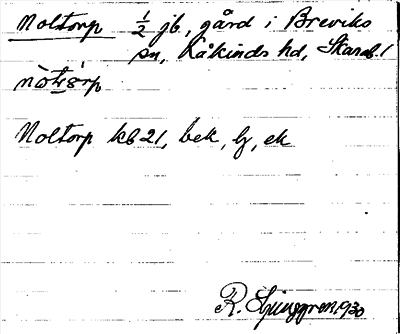 Noltorp 1/2 jb, gård i Breviks
sn, Kåkinds hd, Skarab. l
Noltorp kb 21, bek, lj, ek
R. Ljunggren 1930